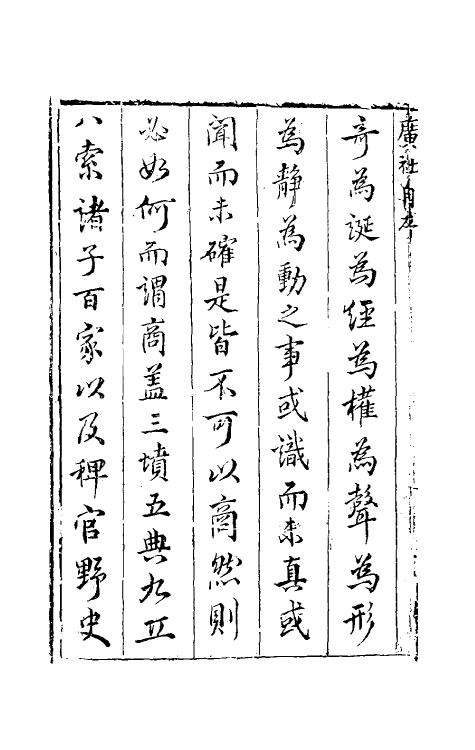 廣社
奇為誕為經為權為聲為形
為靜為動之事或識而未真或
聞而未確是皆不可以商然則
必如何而謂商盖三墳五典九丘
八索諸子百家以及稗官野史